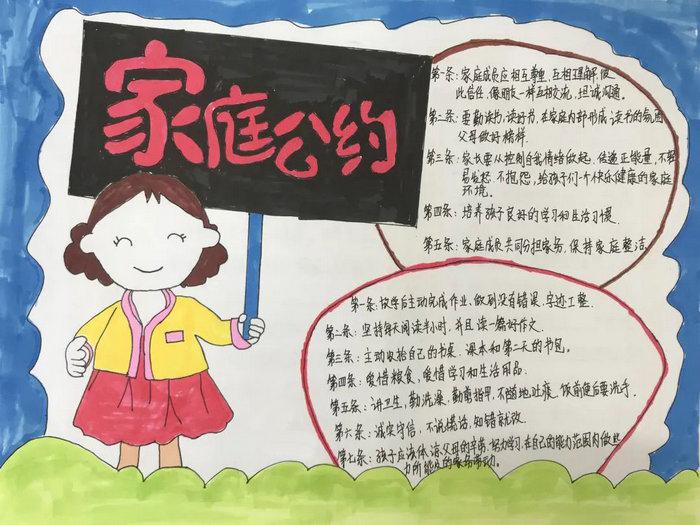 家庭公约
第一条：家庭成员应相互尊重，互相理解，彼
此信任，像朋友一样互相交流，坦诚沟通。
第二条：要勤读书，读好书，在家庭内部形成读书的氛围
父母做好榜样.
第三条：家长要从控制自我情绪做起，传递正能量，不轻
易发怒，不抱怨，给孩子们一个快乐健康的家庭
环境.
第四条：培养孩子良好的学习和生活习惯.
第五条：家庭成员共同分担家务，保持家庭整洁.
第一条：放学后主动完成作业，做到没有错误，字迹工整.
第二条：坚持每天阅读半小时，并且读一篇好作文.
第三条：主动收拾自己的书桌，课本和第二天的书包。
第四条：爱惜粮食，爱惜学习和生活用品.
第五条：讲卫生，勤洗澡，勤剪指甲，不随地吐痰，饭前便后要洗手。
第六条：诚实守信，不说谎话，知错就改.
第七条：孩子应该体谅父母的辛劳，努力学习，在自己的能力范围内做些
力所能及的家务劳动。